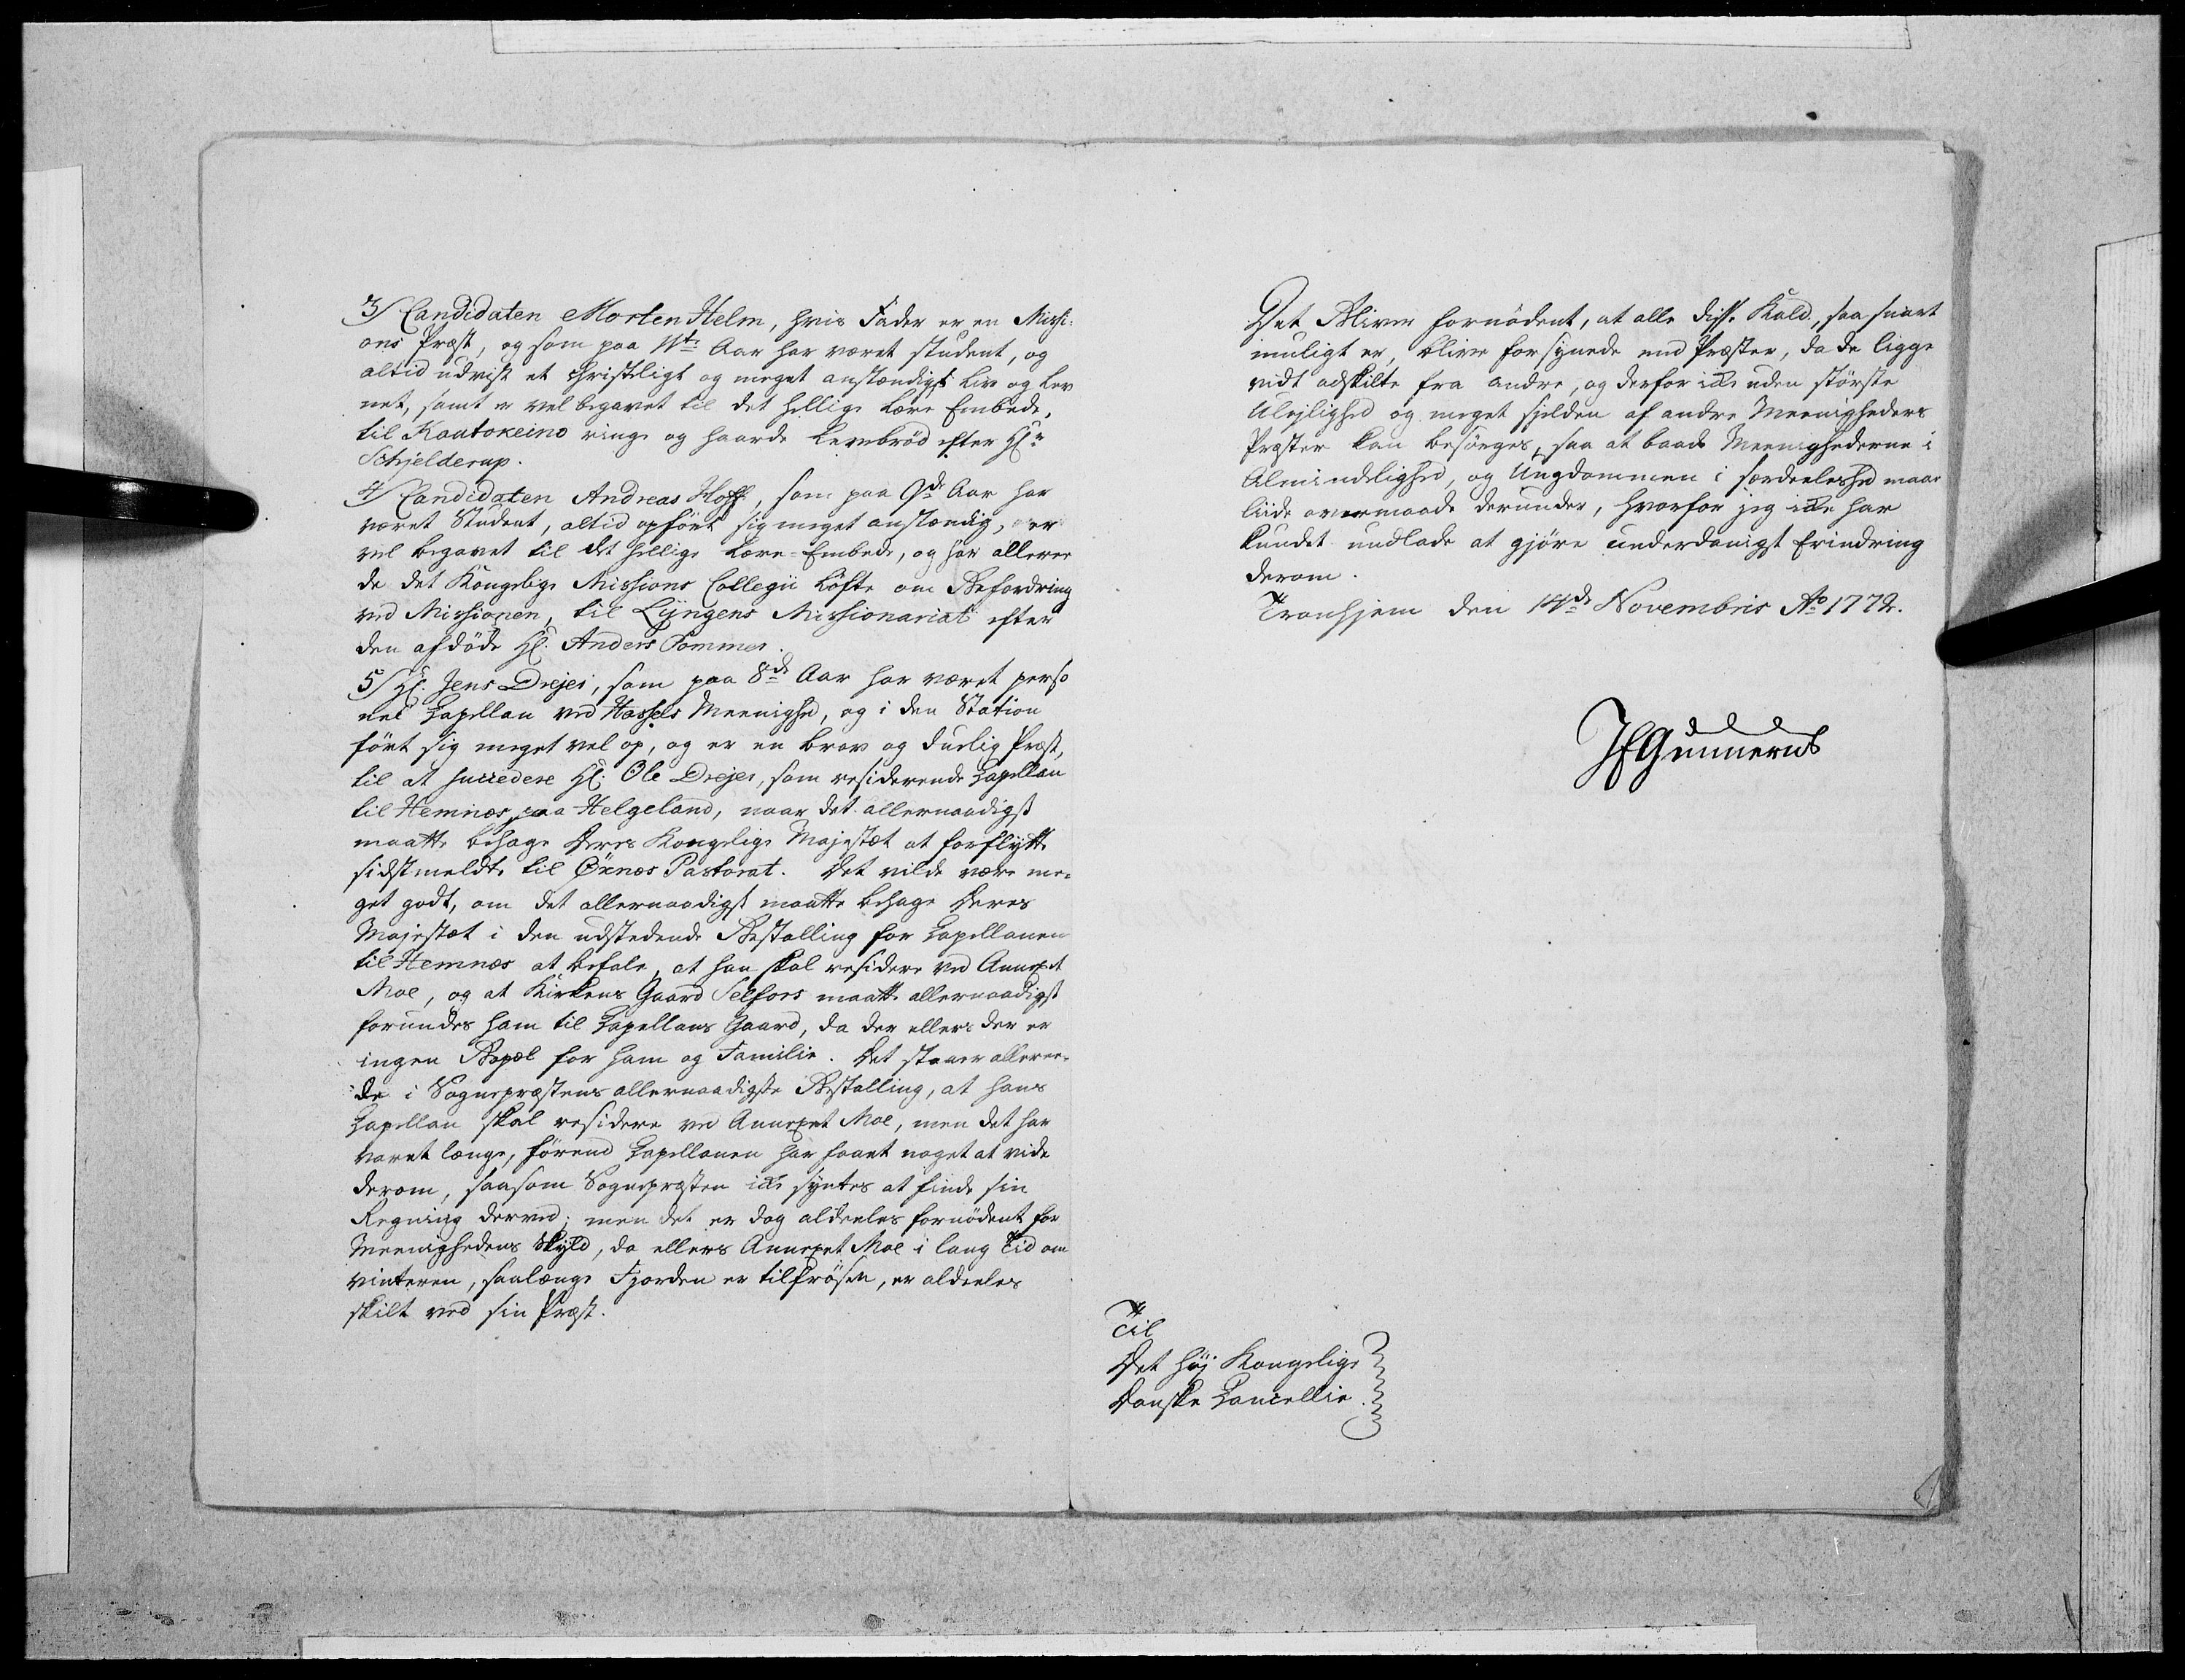 3/ Candidaten Morten Helm, hvis Fader er en Missi-
ons Præst, og som paa 11te Aar har været student, og
altid udvist et Christeligt og meget anstændigt Liv og Lev
net, samt er vel begavet til det hellige Lære Embede,
til Kautokeino ringe og haarde Levebrød efter Hr
Schjelderup.
4/ Candidaten Andreas Hoff, som paa 9de Aar har
været Student, altid opført sig meget anstændig, er
vel begavet til det hellige Lære-Embede, og har alleree
de det Kongelige Missions Collegii Løfte om Befordring
ved Missionen, til Lyngens Missionariat efter
den afdøde Hr. Anders Pommer.
5/ Hr. Jens Drejer, som paa 8de Aar har været perso
nel Capellan ved Hassels Meenighed, og i den Station
ført sig meget vel op, og er en brav og duelig Præst,
til at succedere Hr. Ole Drejer, som residerende Capellan
til Hemnæs paa Helgeland, naar det allernaadigst
maatte behage Deres Kongelige Majestæt at forflytte
sidstmeldte til Öxnæs Pastorat. Det vilde være me-
get godt, om det allernaadigst maatte behage Deres
Majestæt i den udstedende Bestalling for Capellanen
til Hemnæs at befale, at han skal residere ved Annexet
Moe, og at Kirkens Gaard Selfors maatte allernaadigst
forundes ham til Capellans Gaard, da der ellers der er
ingen Bopæl for ham og Familie. Det staaer alleree-
de i Sognepræstens allernaadigste Bestalling, at hans
Capellan skal residere ved Annexet Moe, men det har
varet længe, førend Capellanen har faaet noget at vide
derom, saasom Sognepræsten icke syntes at finde sin
Regning derved; men det er dog aldeeles fornødent for
Meenighedens Skyld, da ellers Annexet Moe i lang Tid om
vinteren, saalænge Fjorden er tilfrøsen, er aldeeles
skilt ved sin Præst.
Det Bliver fornødent, at alle disse Kald, saa snart
muligt er, blive forsynede med Præster, da de ligge
vidt adskilte fra andre, og derfor icke uden største
Ulejlighed og meget sjelden af andre Meenigheders
Præster kan besørges, saa at baade Meenighederne i
Almindelighed, og Ungdommen i særdeeleshed maae
lide overmaade derunder, hvorfor jeg icke har
kundet undlade at gjøre underdanigst Erindring
derom.
Tronhjem den 14de Novembris Ao 1772.
JEGunnerus
Til
Det høj Kongelige
Danske Cancellie.